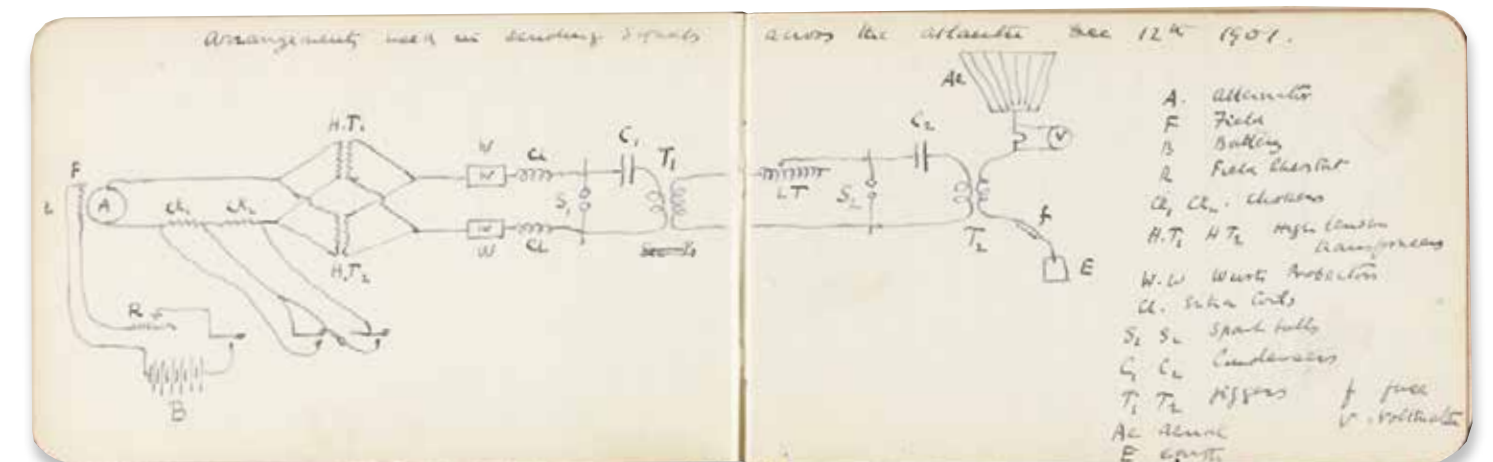 Arrangements used in sending signals across the Atlantic Dec 12th 1901.
H.T1
F
A
Ck1
Ck2
H.T2
R
B
W
W
CL
C1
T1
S1
W
W
CL
LT
C2
S2
T2
Ae
V
f
E
A. Alternator
F Field
B Battery
R Field Rheostat
Ck1 Ck2. Chokers
H.T1 H T2 High tension
transformers
W.W Wurts Protectors
Coils
S1 S2 Spark balls
C1 C2 Condensers
T1 T2 Jiggers f fuse
V. Voltmeter
Ae Aerial
E Earth